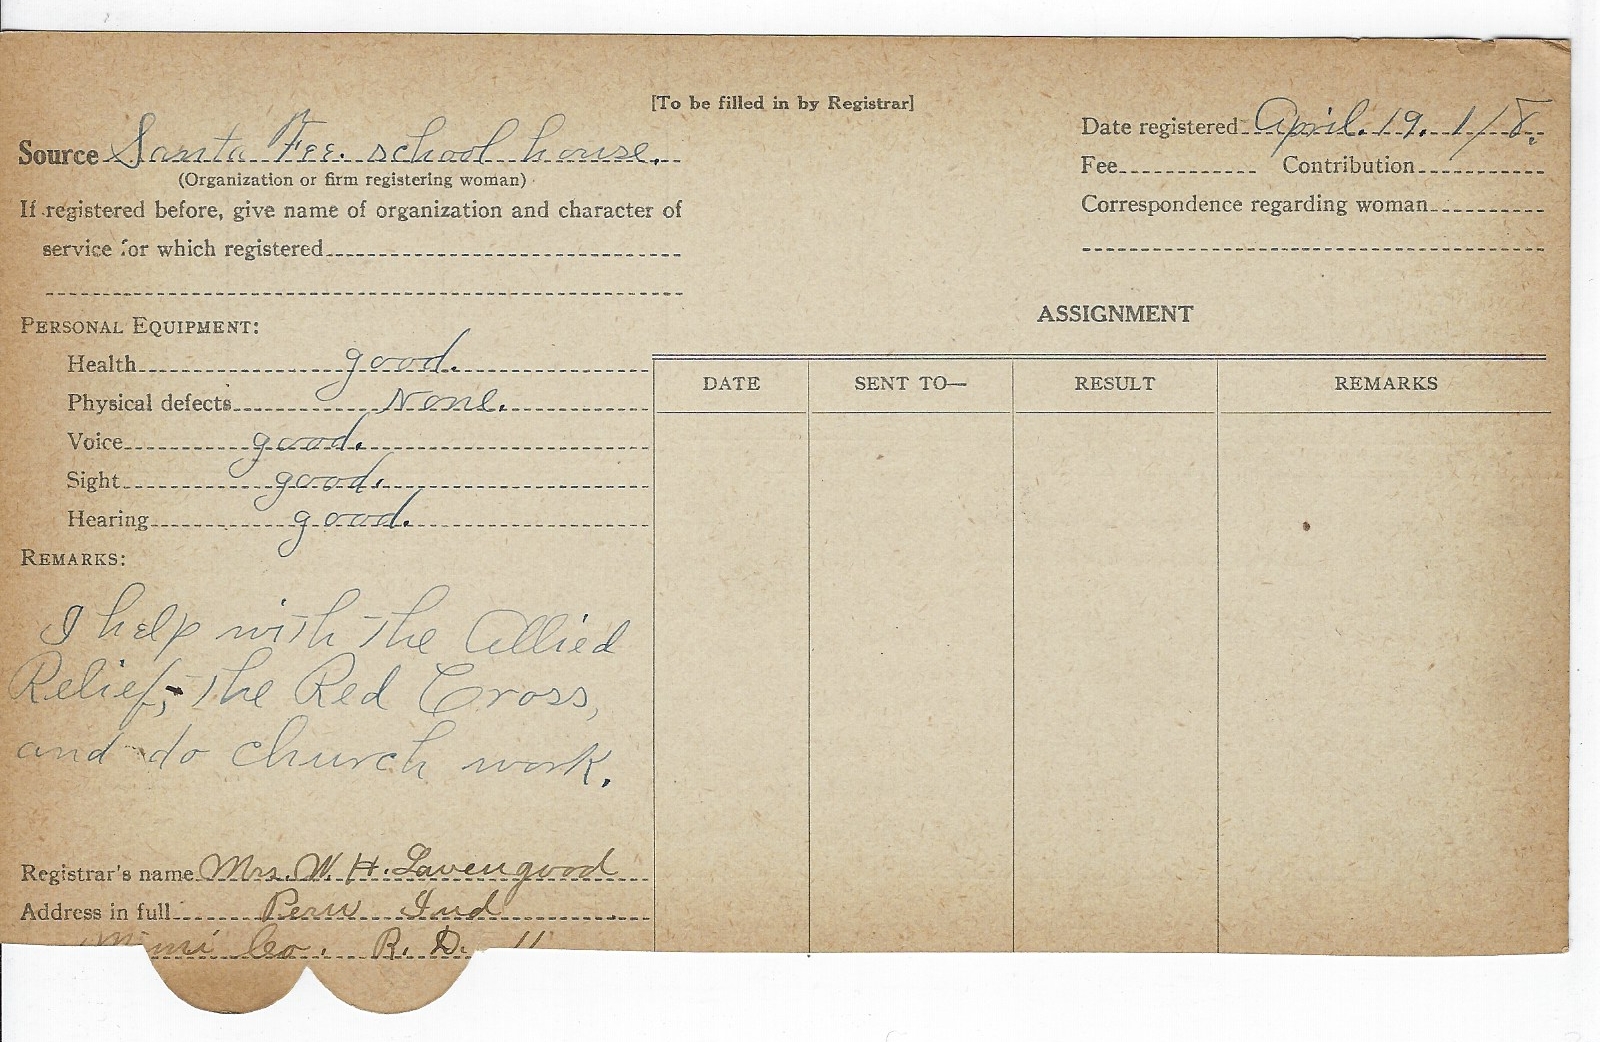 [To be filled in by Registrar]
Source Santa Fee. school house.
(Organization or firm registering woman)
If registered before, give name of organization and character of
service for which registered
Date registered April. 19. 1/8.
Fee Contribution
Correspondence regarding woman
PERSONAL EQUIPMENT:
Health good.
Physical defects None.
Voice good.
Sight good.
Hearing good.
REMARKS:
I help with the Allied
Relief, the Red Cross,
and do church work.
Registrar's name Mrs. W. H. Lavengood
Address in full Peru Ind
Co. R. D. 11
ASSIGNMENT
DATE SENT TO— RESULT REMARKS